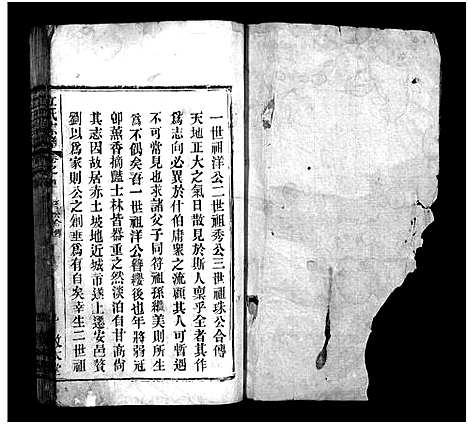 一世祖洋公二世祖秀公三世祖珠公合傳
天地正大之氣日散見於斯人稟乎全者其作
為志向必異於什伯庸眾之流顧其人可暫遇
不可常見也求諸父子同符祖孫繼美則所生
為不偶矣吾一世祖洋公簪纓後也年將弱冠
卯薰香摘豔士林皆器重之然淡泊有甘高尚
其志因故居赤土坡地近城市遂上遷安邑贅
劉以為家則公之創垂為有自矣幸生二世祖
氏
卷之